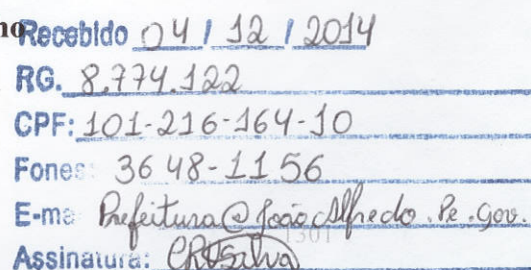 no
Recebido 04 / 12 / 2014
RG. 8.774.122
CPF: 101-216-164-10
Fones: 3648-1156
E-ma Prefeitura@joãoAlfredo.Pe.Gov.
1301
Assinatura: CRDSilva